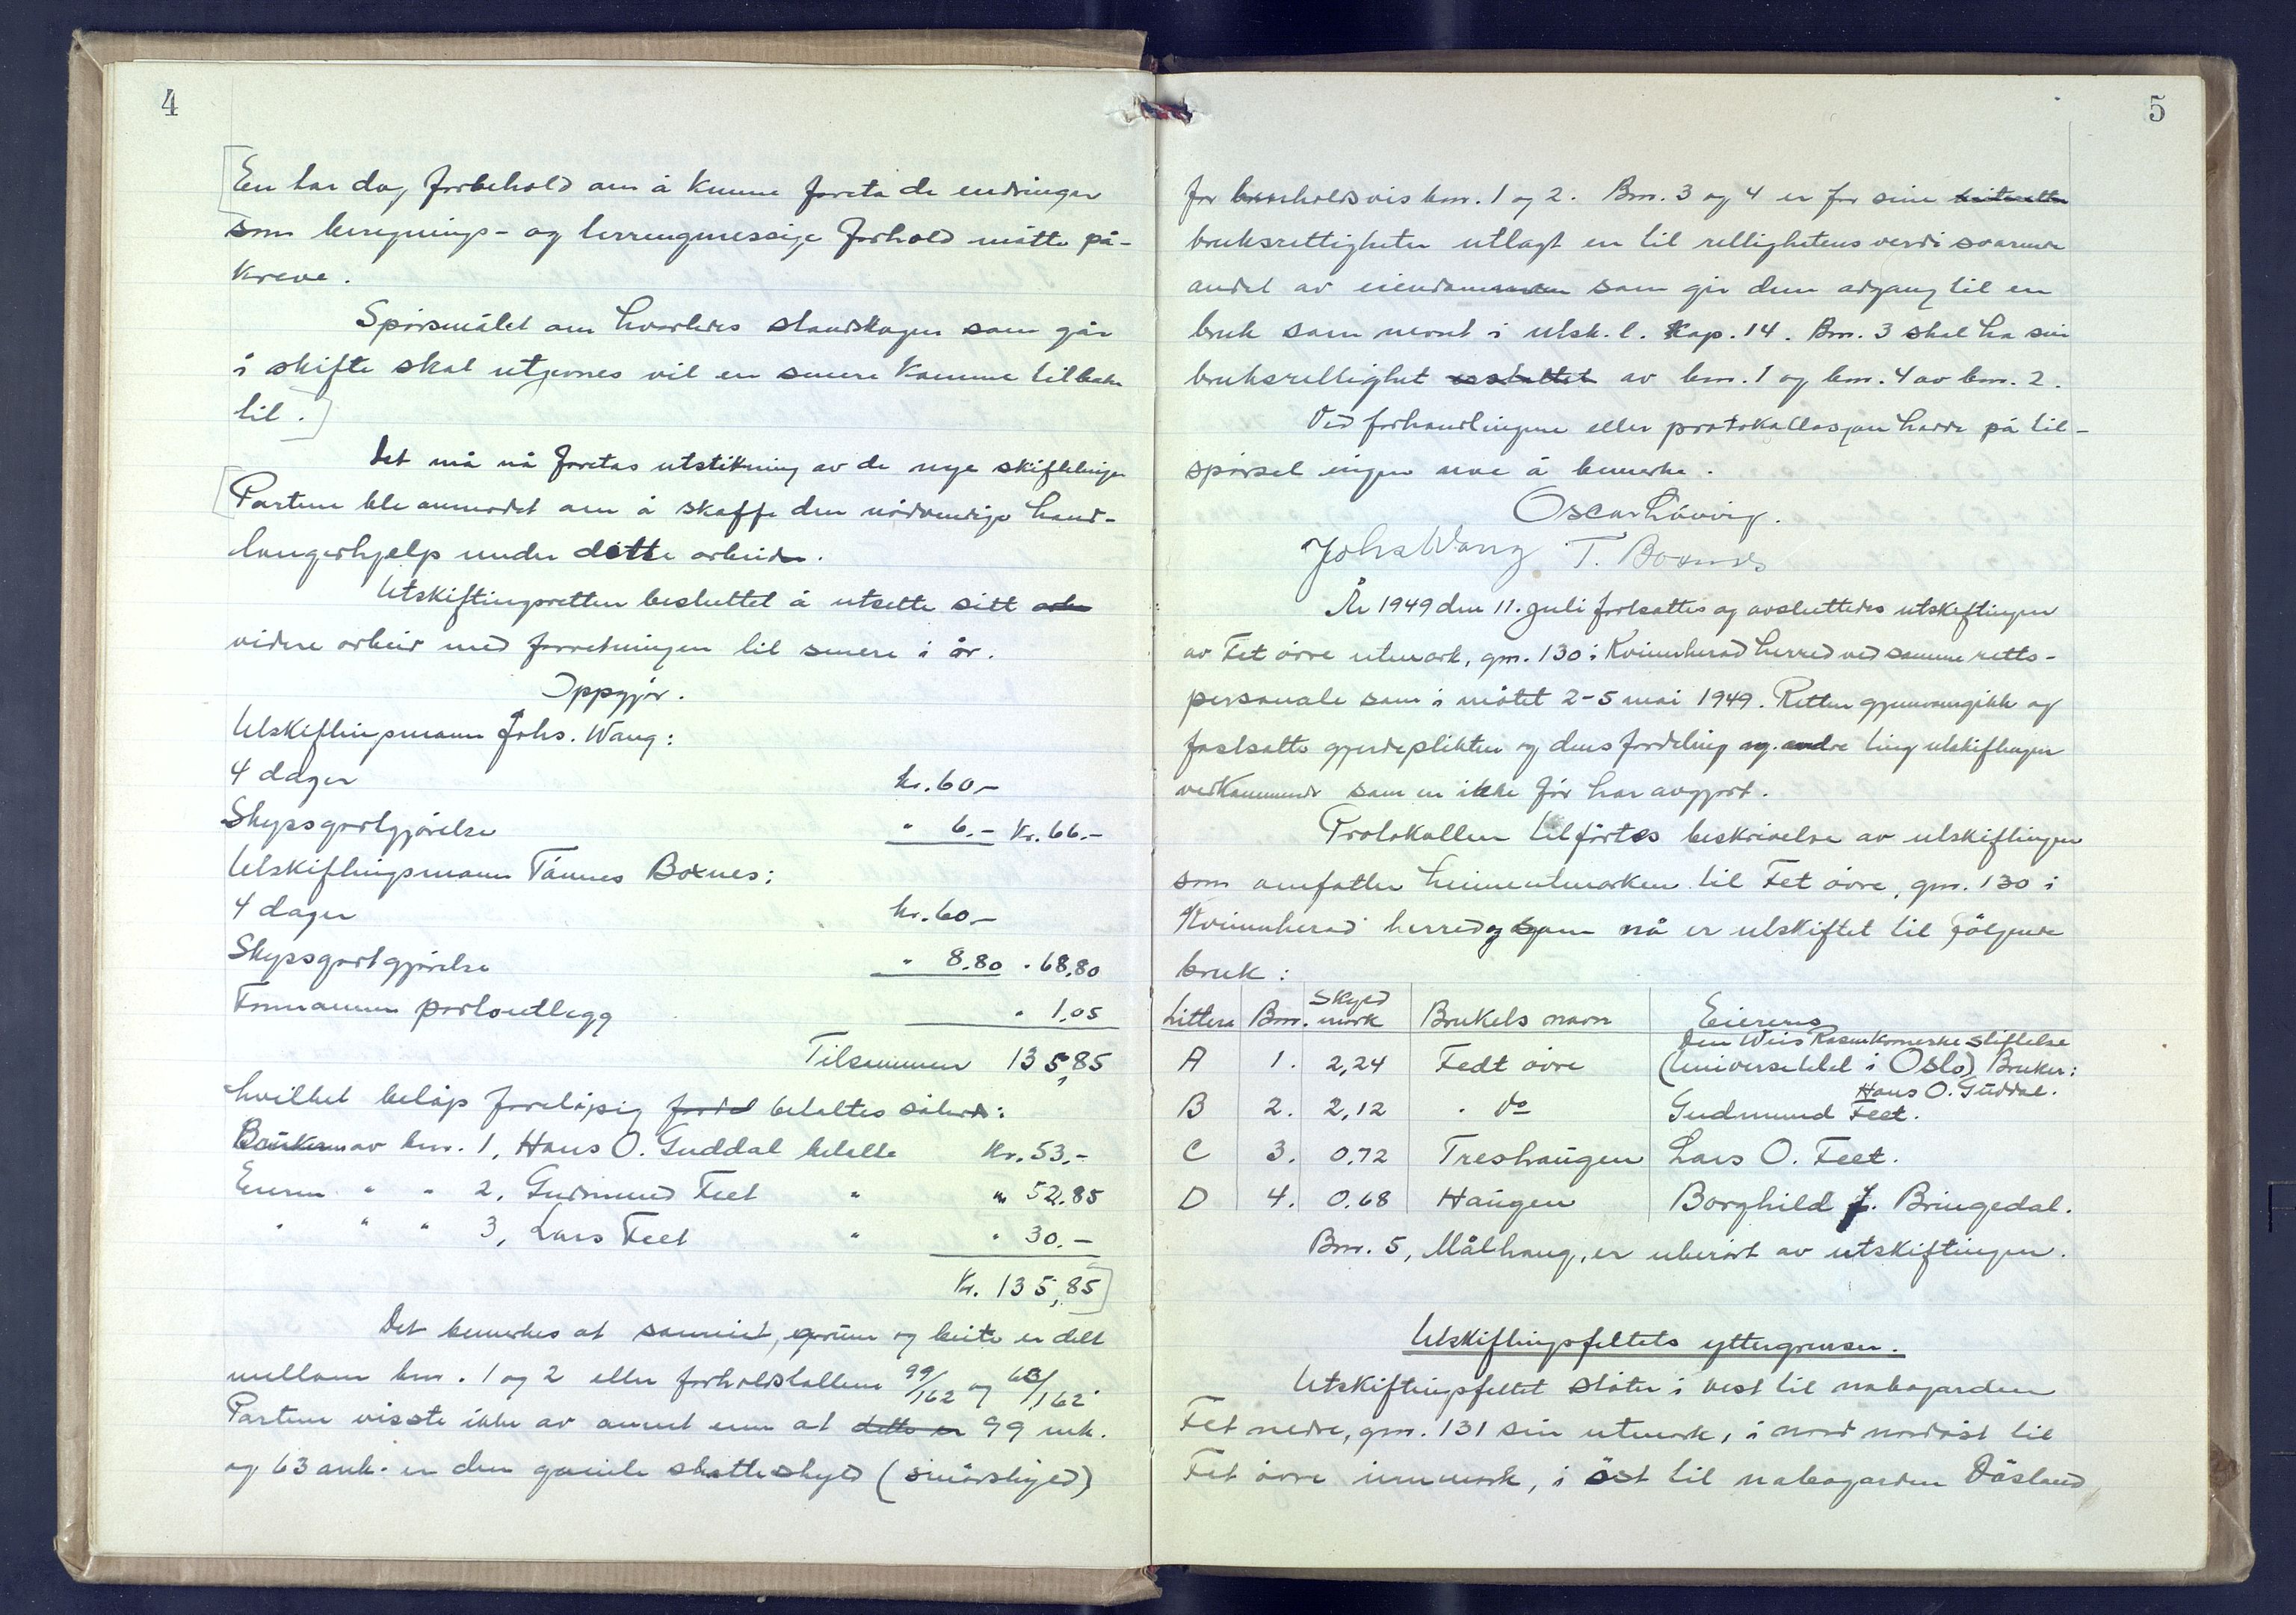 4
En tar dog forbehold om å kunne foreta de endringer
som beregnings- og terrengmessige forhold måtte på-
kreve.
Spörsmålet om hvorledes standskogen som går
i skifte skal utjevnes vil en senere komme tilbake
til.
Det må nå foretas utstikning av de nye skiftelinjer
Partene ble anmodet om å skaffe den nödvendige hand-
langerhjelp under dette arbeide.
Utskiftingsretten besluttet å utsette sitt arbe
videre arbeid med forretningen til senere i år.
Oppgjör.
Utskiftingsmann Johs. Wang:
4 dager kr. 60,-
Skyssgodtgjörelse " 6.- Kr. 66.-
Utskiftingsmann Tönnes Boxnes:
4 dager kr. 60,-
Skyssgodtgjörelse " 8,80 " 68,80
Formannen portoutlegg " 1,05
Tilsammen 135,85
hvilket belöp forelöpig fordel betaltes således:
Brukeren av bnr. 1, Hans O. Guddal betalte Kr. 53.-
Eieren " " 2, Gudmund Feet " " 52.85
" " " 3, Lars Feet " " 30.-
Kr. 135,85
Det bemerkes at sameiet, grunn og beite er delt
mellom bnr. 1 og 2 etter forholdstallene 99/162 og 63/162.
Partene visste ikke av annet enn at dette er 99 mk.
og 63 mk. er den gamle skatteskyld (smörskyld)
5
for henholdsvis bnr. 1 og 2. Bnr. 3 og 4 er for sine
bruksrettigheter utlagt en til rettighetens verdi svarende
andel av eiendommen som gir dem adgang til en
bruk som nevnt i utsk. l. Kap. 14. Bnr. 3 skal ha sin
bruksrettighet av bnr. 1 og bnr. 4 av bnr. 2.
Ved forhandlingene eller protokollasjon hadde på til-
spörsel ingen noe å bemerke.
Oscar Lövvig.
Johs Wang T. Boxnes
År 1949 den 11. juli fortsattes og avsluttedes utskiftingen
av Fet övre utmark, gnr. 130 i Kvinnherad herred ved samme retts-
personale som i mötet 2-5 mai 1949. Retten gjennomgikk og
fastsatte gjerdeplikten og dens fordeling og andre ting utskiftingen
vedkommende som en ikke för har avgjort.
Protokollen tilförtes beskrivelse av utskiftingen
som omfatter heimeutmarken til Fet övre, gnr. 130 i
Kvinnherad herred og som nå er utskiftet til fölgende
bruk:
Littera Bnr. Skyld mark Brukets navn Eierens
A 1. 2,24 Fedt övre Den Weis Rosenkroneske stiftelse
(Universitetet i Oslo) Bruker:
Hans O. Guddal.
B 2. 2,12 " do Gudmund Feet.
C 3. 0.72 Treshaugen Lars O. Feet.
D 4. 0.68 Haugen Borghild J. Bringedal.
Bnr. 5, Målhaug, er uberört av utskiftingen.
Utskiftingsfeltets yttergrenser.
Utskiftingsfeltet stöter i vest til nabogarden
Fet nedre, gnr. 131 sin utmark, i nord nordöst til
Fet övre innmark, i öst til nabogarden Dösland